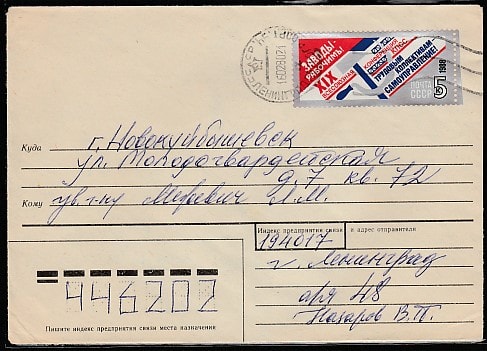 ЗАВОДЫ-
РАБОЧИМ!
XIX
ВСЕСОЮЗНАЯ
КОНФЕРЕНЦИЯ
КПСС
ТРУДОВЫМ
КОЛЛЕКТИВАМ-
САМОУПРАВЛЕНИЕ!
1988
ПОЧТА
СССР
5
Куда г. Новокуйбышевск
ул. Молодогвардейская
д. 7 кв. 72
Кому ув. т-щу Меревич Л.М.
Индекс предприятия связи и адрес отправителя
194017
г. Ленинград
а/я 48
Назаров В.П.
446202
Пишите индекс предприятия связи места назначения